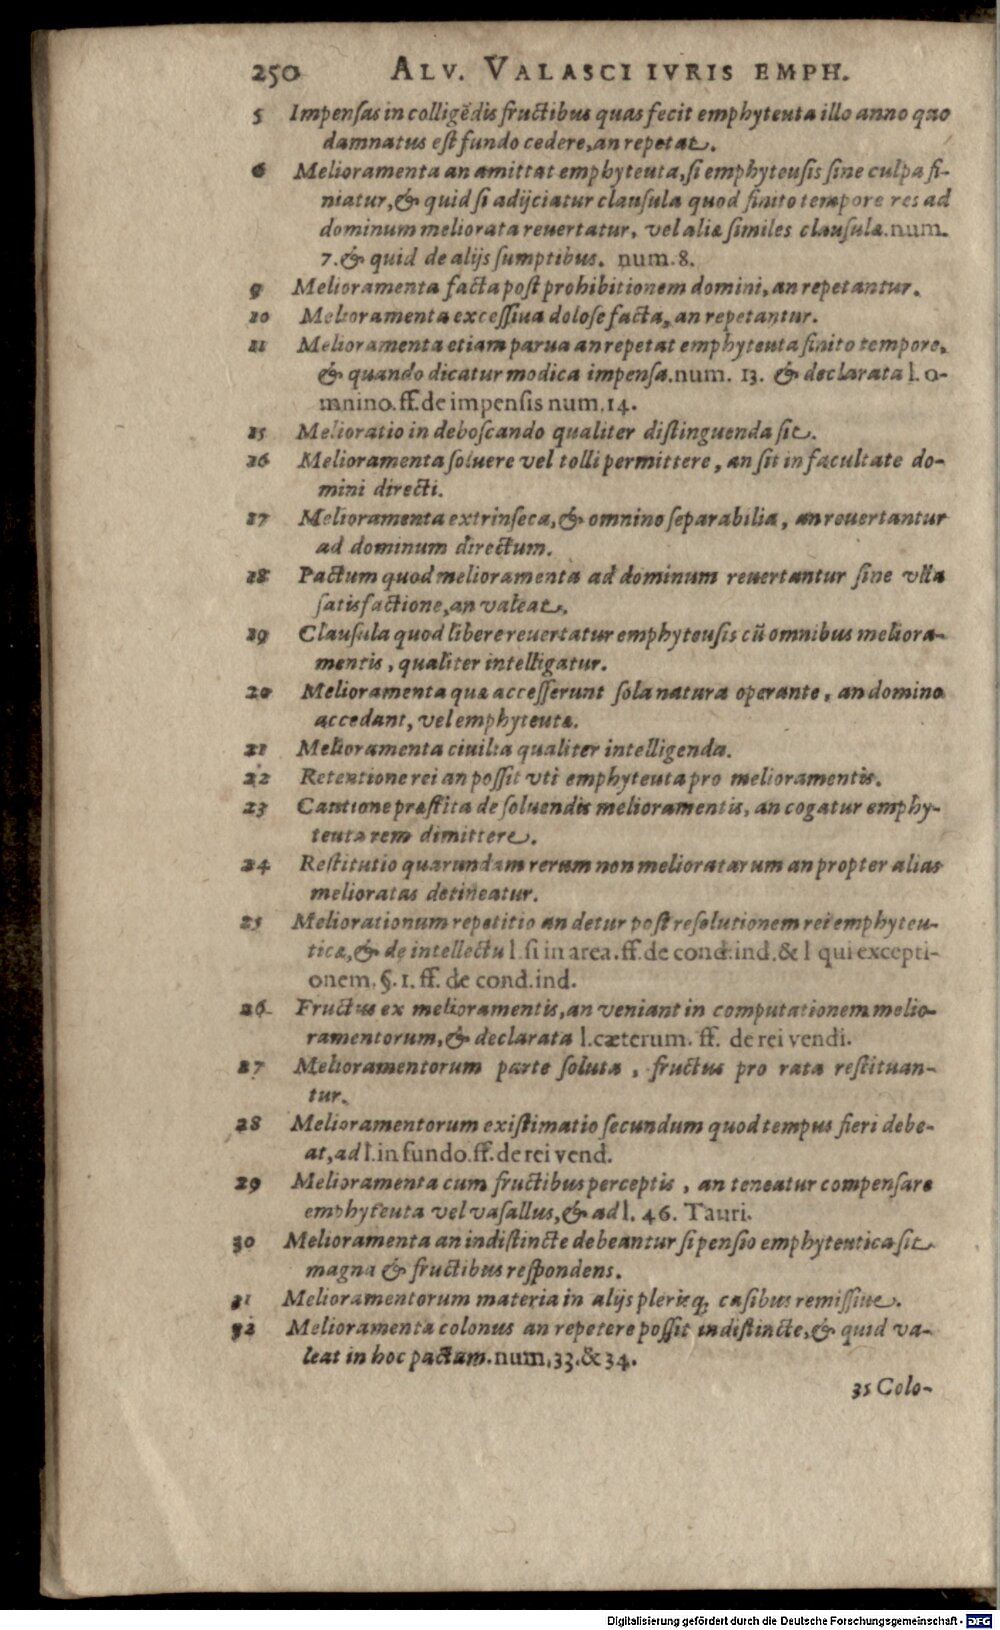 250 ALV. VALASCI IVRIS EMPH.
5 Impensas in colligẽdis fructibus quas fecit emphyteuta illo anno quo
damnatus est fundo cedere, an repetat.
6 Melioramenta an amittat emphyteuta, si emphyteusis sine culpa fi-
niatur, & quid si adijciatur clausula quod finito tempore res ad
dominum meliorata reuertatur, vel aliæ similes clausulæ. num.
7. & quid de alijs sumptibus. num. 8.
9 Melioramenta facta post prohibitionem domini, an repetantur.
10 Melioramenta excessiua dolose facta, an repetantur.
11 Melioramenta etiam parua an repetat emphyteuta finito tempore,
& quando dicatur modica impensa. num. 13. & declarata l. o-
mnino. ff. de impensis num. 14.
15 Melioratio in deboscando qualiter distinguenda sit.
16 Melioramenta soluere vel tolli permittere, an sit in facultate do-
mini directi.
17 Melioramenta extrinseca, & omnino separabilia, an reuertantur
ad dominum directum.
18 Pactum quod melioramenta ad dominum reuertantur sine vlla
satisfactione, an valeat.
19 Clausula quod libere reuertatur emphyteusis cũ omnibus meliora-
mentis, qualiter intelligatur.
20 Melioramenta quæ accesserunt sola natura operante, an domino
accedant, vel emphyteutæ.
21 Melioramenta ciuilia qualiter intelligenda.
22 Retentione rei an possit vti emphyteuta pro melioramentis.
23 Cautione præstita de soluendis melioramentis, an cogatur emphy-
teuta rem dimittere.
24 Restitutio quarundam rerum non melioratarum an propter alias
melioratas detineatur.
25 Meliorationum repetitio an detur post resolutionem rei emphyteu-
ticæ, & de intellectu l. si in area. ff. de cond. ind. & l qui excepti-
onem. §. 1. ff. de cond. ind.
26 Fructus ex melioramentis, an veniant in computationem melio-
ramentorum, & declarata l. cæterum. ff. de rei vendi.
27 Melioramentorum parte soluta, fructus pro rata restituan-
tur.
28 Melioramentorum existimatio secundum quod tempus fieri debe-
at, ad l. in fundo. ff. de rei vend.
29 Melioramenta cum fructibus perceptis, an teneatur compensare
emphyteuta vel vasallus, & ad l. 46. Tauri.
30 Melioramenta an indistincte debeantur si pensio emphyteutica sit
magna & fructibus respondens.
31 Melioramentorum materia in alijs plerisq; casibus remissiue.
32 Melioramenta colonus an repetere possit indistincte, & quid va-
leat in hoc pactum. num, 33. & 34.
35 Colo-
Digitalisierung gefördert durch die Deutsche Forschungsgemeinschaft - DFG